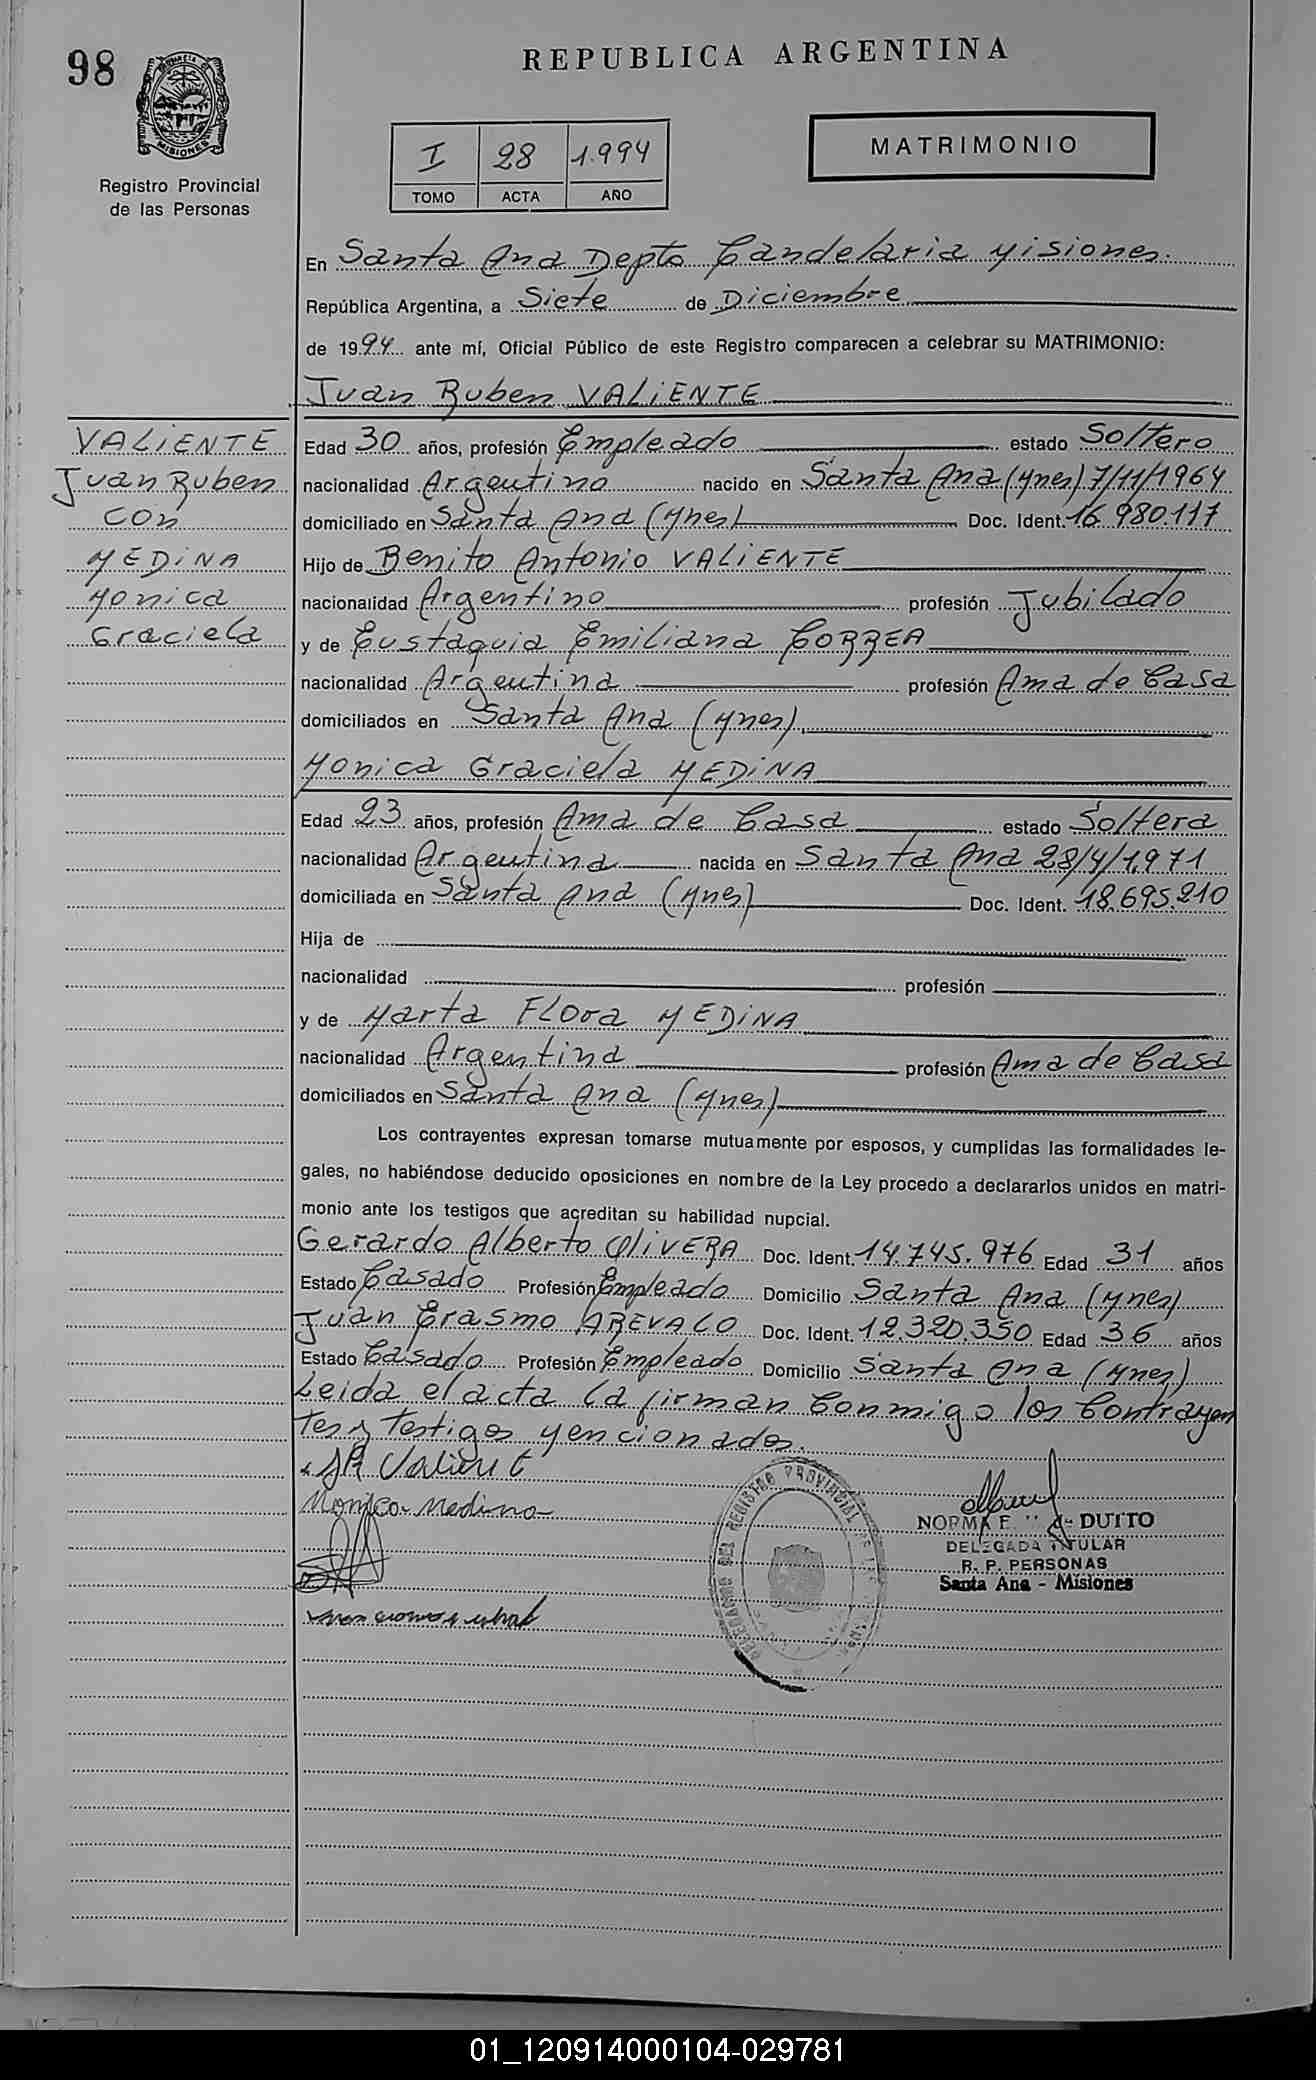 98
REPUBLICA ARGENTINA
PROVINCIA DE MISIONES
Registro Provincial
de las Personas
I 28 1.994
TOMO ACTA AÑO
MATRIMONIO
En Santa Ana Depto Candelaria Misiones.
República Argentina, a Siete de Diciembre
de 1994 ante mí, Oficial Público de este Registro comparecen a celebrar su MATRIMONIO:
Juan Ruben VALIENTE
VALIENTE
Juan Ruben
con
MEDINA
Monica
Graciela
Edad 30 años, profesión Empleado estado Soltero
nacionalidad Argentino nacido en Santa Ana (Mnes) 7/11/1964
domiciliado en Santa Ana (Mnes) Doc. Ident. 16.980.117
Hijo de Benito Antonio VALIENTE
nacionalidad Argentino profesión Jubilado
y de Eustaquia Emiliana CORREA
nacionalidad Argentina profesión Ama de Casa
domiciliados en Santa Ana (Mnes).
Monica Graciela MEDINA
Edad 23 años, profesión Ama de Casa estado Soltera
nacionalidad Argentina nacida en Santa Ana 28/4/1.971
domiciliada en Santa Ana (Mnes) Doc. Ident. 18.695.210
Hija de
nacionalidad profesión
y de Marta Flora MEDINA
nacionalidad Argentina profesión Ama de Casa
domiciliados en Santa Ana (Mnes)
Los contrayentes expresan tomarse mutuamente por esposos, y cumplidas las formalidades le-
gales, no habiéndose deducido oposiciones en nombre de la Ley procedo a declararlos unidos en matri-
monio ante los testigos que acreditan su habilidad nupcial.
Gerardo Alberto OLIVERA Doc. Ident. 14.745.976 Edad 31 años
Estado Casado Profesión Empleado Domicilio Santa Ana (Mnes)
Juan Erasmo AREVALO Doc. Ident. 12.320.350 Edad 36 años
Estado Casado Profesión Empleado Domicilio Santa Ana (Mnes)
Leida el acta la firman Conmigo los Contrayen
tes y Testigos Mencionados.
JR Valient
Monica Medina
NORMA E. DUTTO
DELEGADA TITULAR
R. P. PERSONAS
Santa Ana - Misiones
DEL REGISTRO PROVINCIAL DE
01_120914000104-029781